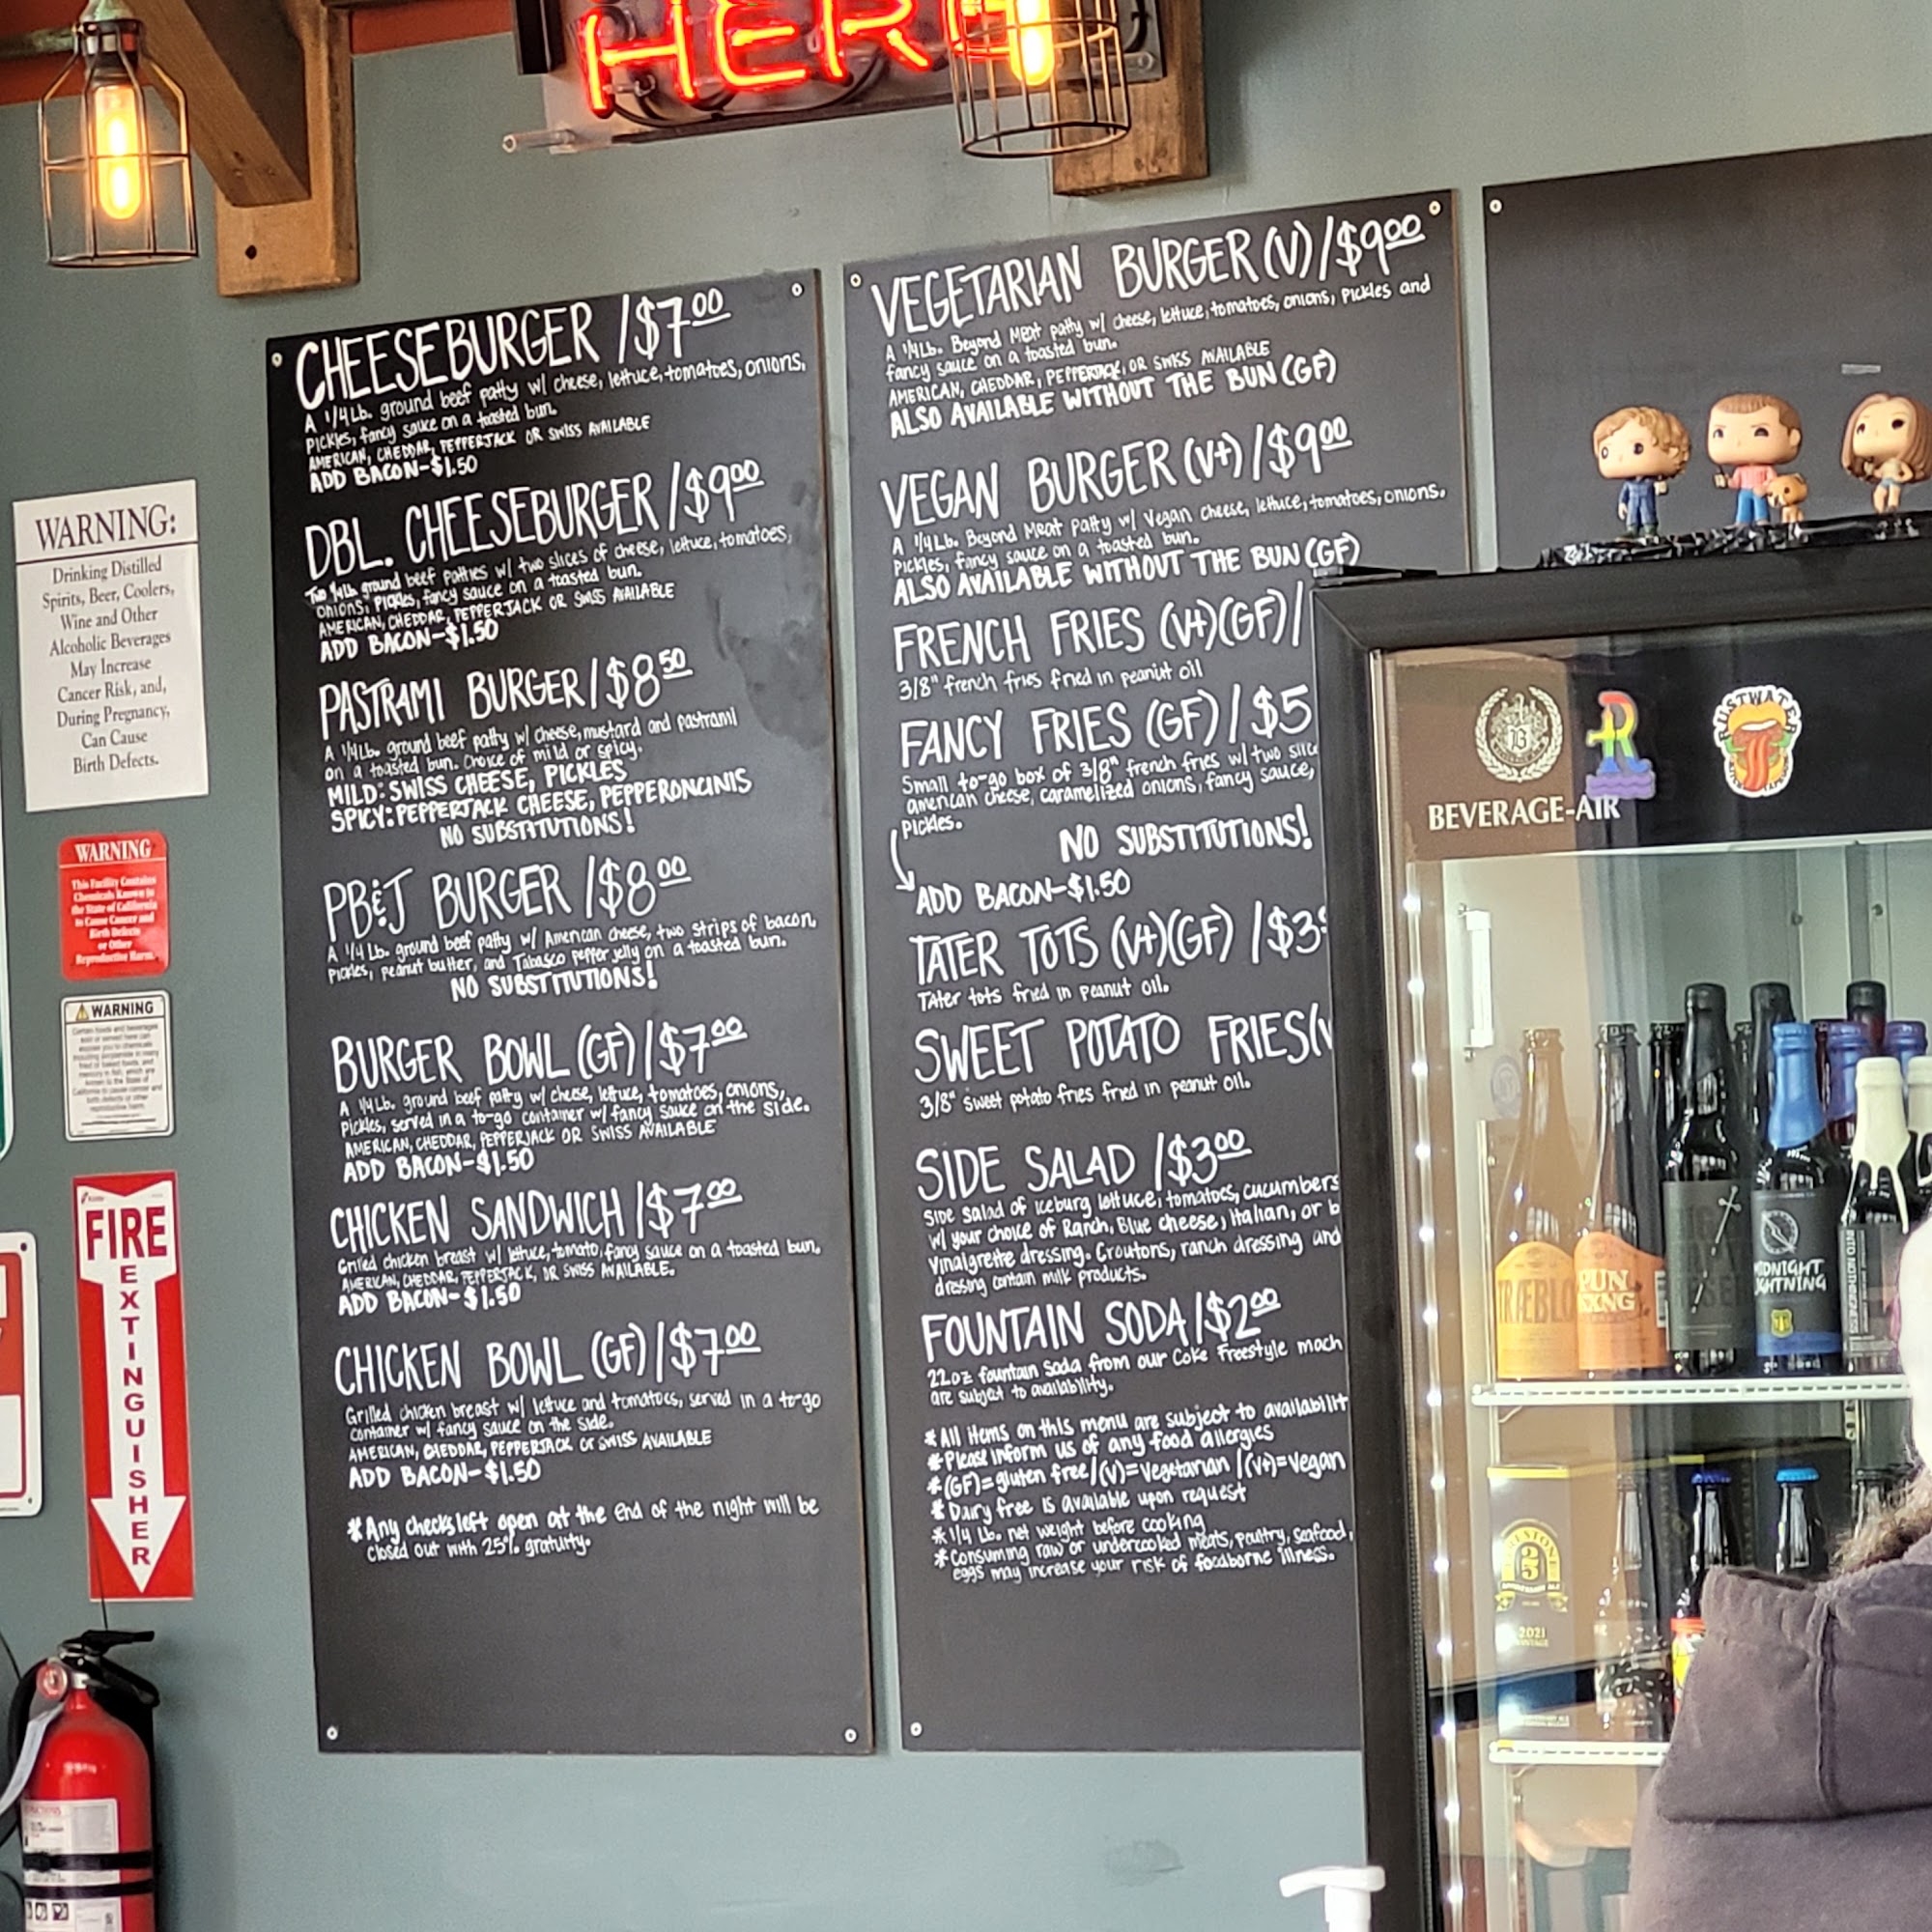 HERE
CHEESEBURGER /$7.00
A 1/4 Lb. ground beef patty w/ cheese, lettuce, tomatoes, onions,
Pickles, fancy sauce on a toasted bun.
AMERICAN, CHEDDAR, PEPPERJACK OR SWISS AVAILABLE
ADD BACON-$1.50
DBL. CHEESEBURGER /$9.00
Two 1/4 Lb. ground beef patties w/ two slices of cheese, lettuce, tomatoes,
onions, pickles, fancy sauce on a toasted bun.
AMERICAN, CHEDDAR, PEPPERJACK OR SWISS AVAILABLE
ADD BACON-$1.50
PASTRAMI BURGER /$8.50
A 1/4 Lb. ground beef patty w/ cheese, mustard and pastrami
on a toasted bun. Choice of mild or spicy.
MILD: SWISS CHEESE, PICKLES
SPICY: PEPPERJACK CHEESE, PEPPERONCINIS
NO SUBSTITUTIONS!
PB&J BURGER /$8.00
A 1/4 Lb. ground beef patty w/ American cheese, two strips of bacon,
Pickles, peanut butter, and Tabasco pepper jelly on a toasted bun.
NO SUBSTITUTIONS!
BURGER BOWL (GF) /$7.00
A 1/4 Lb. ground beef patty w/ cheese, lettuce, tomatoes, onions,
Pickles, served in a to-go container w/ fancy sauce on the side.
AMERICAN, CHEDDAR, PEPPERJACK OR SWISS AVAILABLE
ADD BACON-$1.50
CHICKEN SANDWICH /$7.00
Grilled chicken breast w/ lettuce, tomato, fancy sauce on a toasted bun.
AMERICAN, CHEDDAR, PEPPERJACK, OR SWISS AVAILABLE.
ADD BACON-$1.50
CHICKEN BOWL (GF) /$7.00
Grilled chicken breast w/ lettuce and tomatoes, served in a to-go
container w/ fancy sauce on the side.
AMERICAN, CHEDDAR, PEPPERJACK or SWISS AVAILABLE
ADD BACON-$1.50
*Any checks left open at the end of the night will be
closed out with 25% gratuity.
VEGETARIAN BURGER (V) /$9.00
A 1/4 Lb. Beyond Meat patty w/ cheese, lettuce, tomatoes, onions, Pickles and
fancy sauce on a toasted bun.
AMERICAN, CHEDDAR, PEPPERJACK, OR SWISS AVAILABLE
ALSO AVAILABLE WITHOUT THE BUN (GF)
VEGAN BURGER (V+) /$9.00
A 1/4 Lb. Beyond Meat Patty w/ Vegan cheese, lettuce, tomatoes, onions.
Pickles, fancy sauce on a toasted bun.
ALSO AVAILABLE WITHOUT THE BUN (GF)
FRENCH FRIES (V+)(GF) /
3/8" french fries fried in peanut oil
FANCY FRIES (GF) /$5
Small to-go box of 3/8" french fries w/ two slice
american cheese, caramelized onions, fancy sauce,
Pickles.
NO SUBSTITUTIONS!
ADD BACON-$1.50
TATER TOTS (V+)(GF) /$3
Tater tots fried in peanut oil.
SWEET POTATO FRIES (
3/8" sweet potato fries fried in peanut oil.
SIDE SALAD /$3.00
Side salad of iceburg lettuce, tomatoes, cucumbers
w/ your choice of Ranch, Blue cheese, Italian, or b
Vinaigrette dressing. Croutons, ranch dressing and
dressing contain milk products.
FOUNTAIN SODA /$2.00
22 oz fountain soda from our Coke Freestyle mach
are subject to availability.
*All items on this menu are subject to availabilit
*Please inform us of any food allergies
*(GF)=gluten free/(V)=Vegetarian/(V+)=Vegan
*Dairy free is available upon request
*1/4 Lb. net weight before cooking
*Consuming raw or undercooked meats, poultry, seafood,
eggs may increase your risk of foodborne illness.
WARNING:
Drinking Distilled
Spirits, Beer, Coolers,
Wine and Other
Alcoholic Beverages
May Increase
Cancer Risk, and,
During Pregnancy,
Can Cause
Birth Defects.
WARNING
This Facility Contains
Chemicals Known to
the State of California
to Cause Cancer and
Birth Defects
or Other
Reproductive Harm.
WARNING
FIRE
EXTINGUISHER
BEVERAGE-AIR
R
PUN
KXNG
MIDNIGHT
LIGHTNING
25
2021